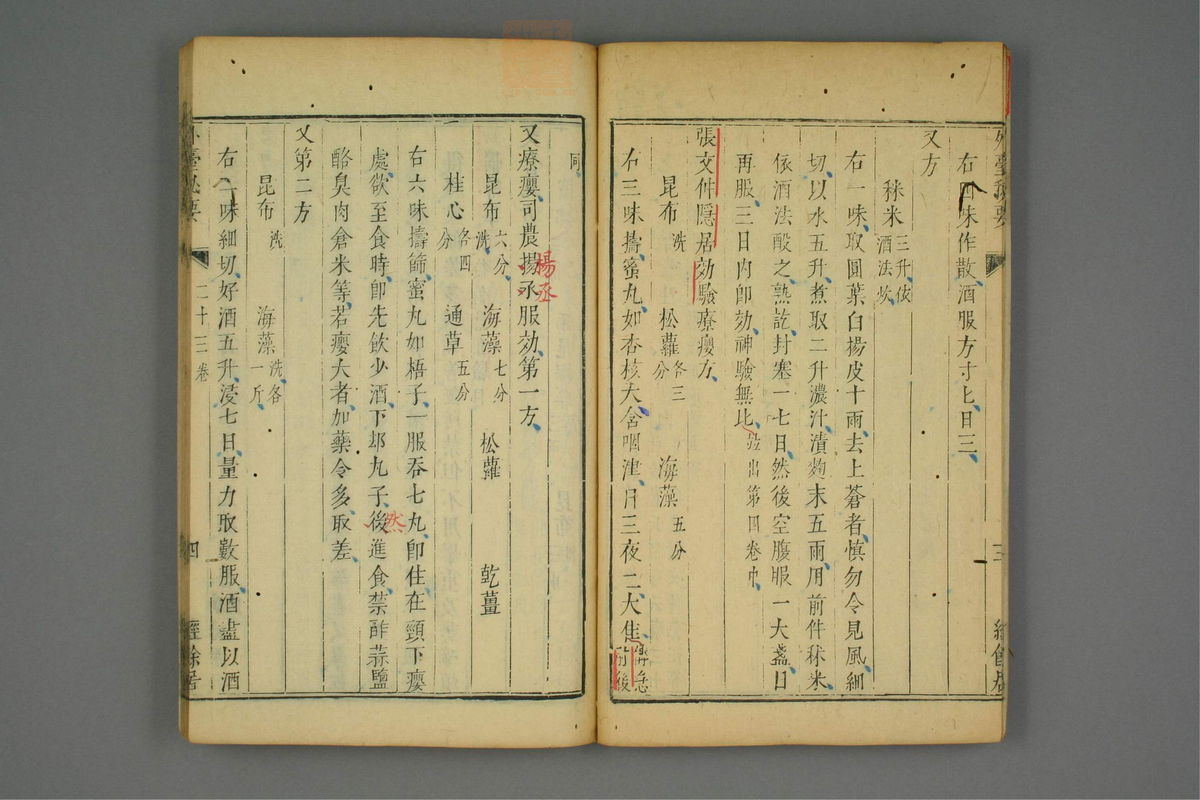 右四味作散酒服方寸匕日三
又方
秫米三升依酒法炊
右一味取圓葉白楊皮十兩去上蒼者慎勿令見風細
切以水五升煮取二升濃汁漬麴末五兩用前件秫米
依酒法酘之熟訖封塞一七日然後空腹服一大盞日
再服三日內即効神驗無比並出第四卷中
張文仲隱居効驗療癭方
昆布洗 松蘿各三分 海藻五分
右三味擣蜜丸如杏核大含咽津日三夜二大佳備急
肘後
同
又療癭司農揚丞服効第一方
楊丞
昆布六分洗 海藻七分 松蘿 乾薑
桂心各四分 通草五分
右六味擣篩蜜丸如梧子一服吞七丸即住在頸下癭
處欲至食時即先飲少酒下却丸子後進食禁酢蒜鹽
然
酪臭肉倉米等若癭大者加藥令多取差
又第二方
昆布洗 海藻洗各一斤
右二味細切好酒五升浸七日量力取數服酒盡以酒
外臺秘要 二十三卷 四 經餘居